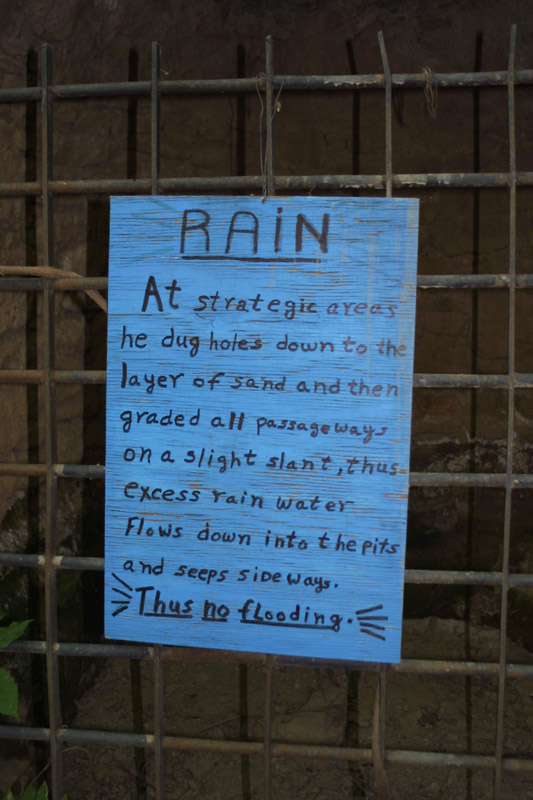 RAiN
At strategic areas
he dug holes down to the
layer of sand and then
graded all passageways
on a slight slant, thus
excess rain water
Flows down into the pits
and seeps sideways.
Thus no flooding.